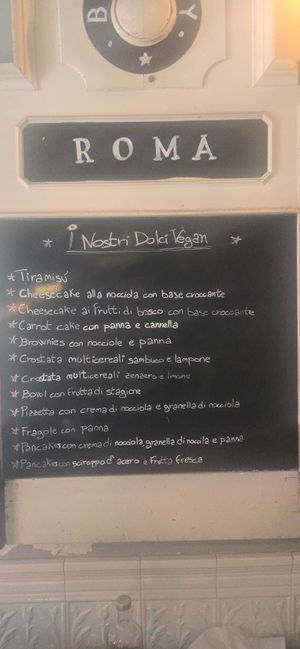 B Y
ROMA
* i Nostri Dolci Vegan *
* Tiramisù
* Cheesecake alla nocciola con base croccante
* Cheesecake ai frutti di bosco con base croccante
* Carrot cake con panna e cannella
* Brownies con nocciole e panna
* Crostata multicereali sambuco e lampone
* Crostata multicereali zenzero e limone
* Bowl con frutta di stagione
* Pizzetta con crema di nocciola e granella di nocciola
* Fragole con panna
* Pancakes con crema di nocciola, granella di nocciola e panna
* Pancakes con sciroppo d'acero e frutta fresca